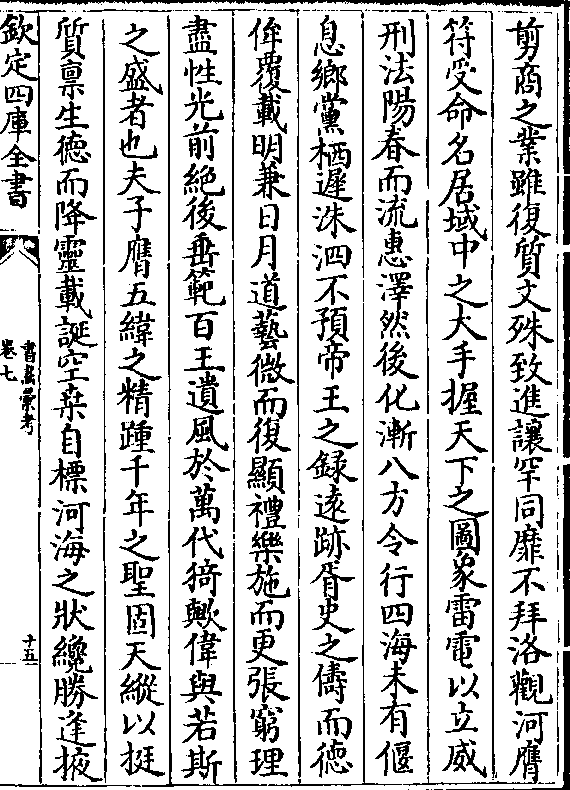 剪商之業雖復質文殊致進讓罕同靡不拜洛觀河膺
符受命名居域中之大手握天下之圖象雷電以立威
刑法陽春而流惠澤然後化漸八方令行四海未有偃
息鄉黨栖遲洙泗不預帝王之録遠跡胥史之儔而徳
侔覆載明兼日月道藝微而復顯禮樂施而更張窮理
盡性光前絶後垂範百王遺風於萬代猗歟偉與若斯
之盛者也夫子膺五緯之精踵千年之聖固天縱以挺
質禀生徳而降靈載誕空桒自標河海之狀纔勝逢掖
欽定四庫全書
書畫彙考
卷七
十五